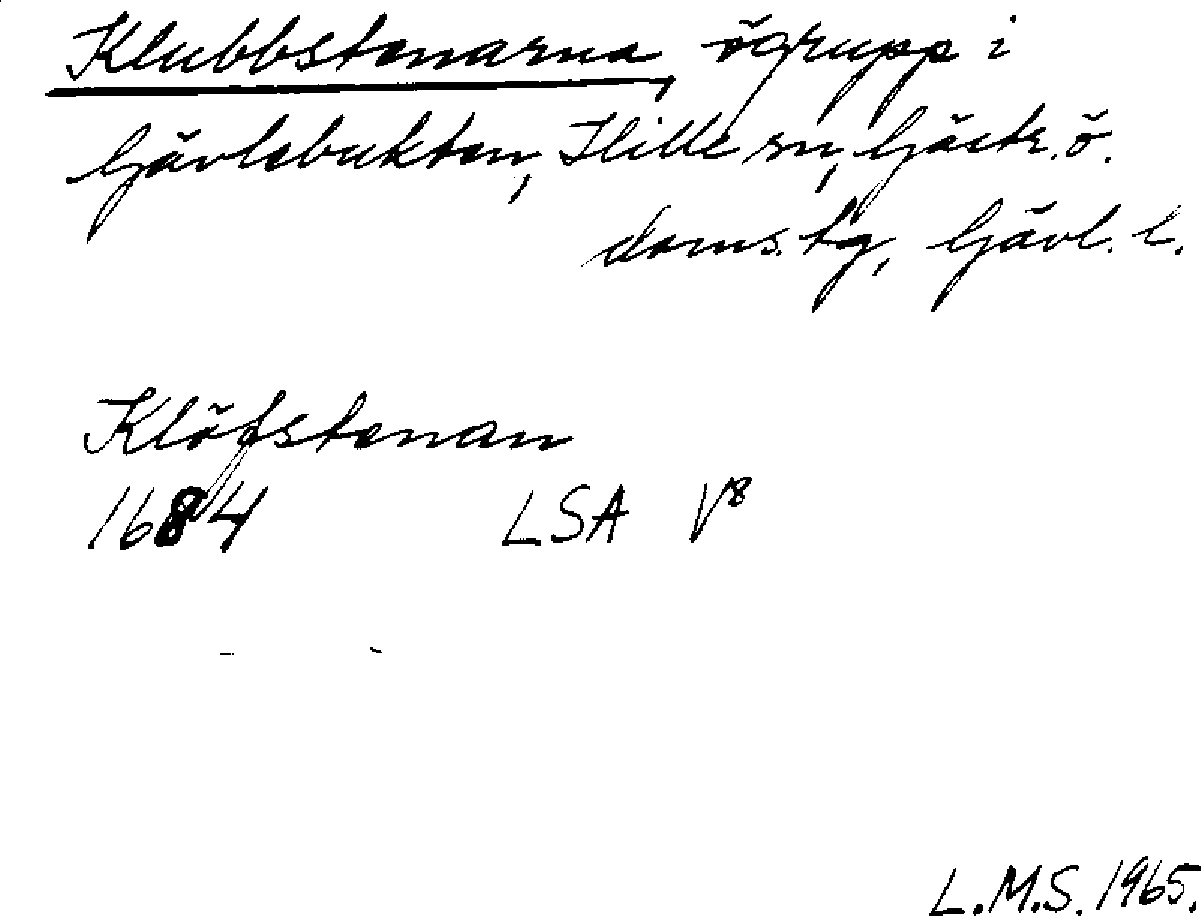 Klubbstenarna, ögrupp i
Gävlebukten, Hille sn, Gästr. ö.
doms. tg, Gävl. l.
Klöfstenan
1684 LSA V8
L.M.S. 1965.